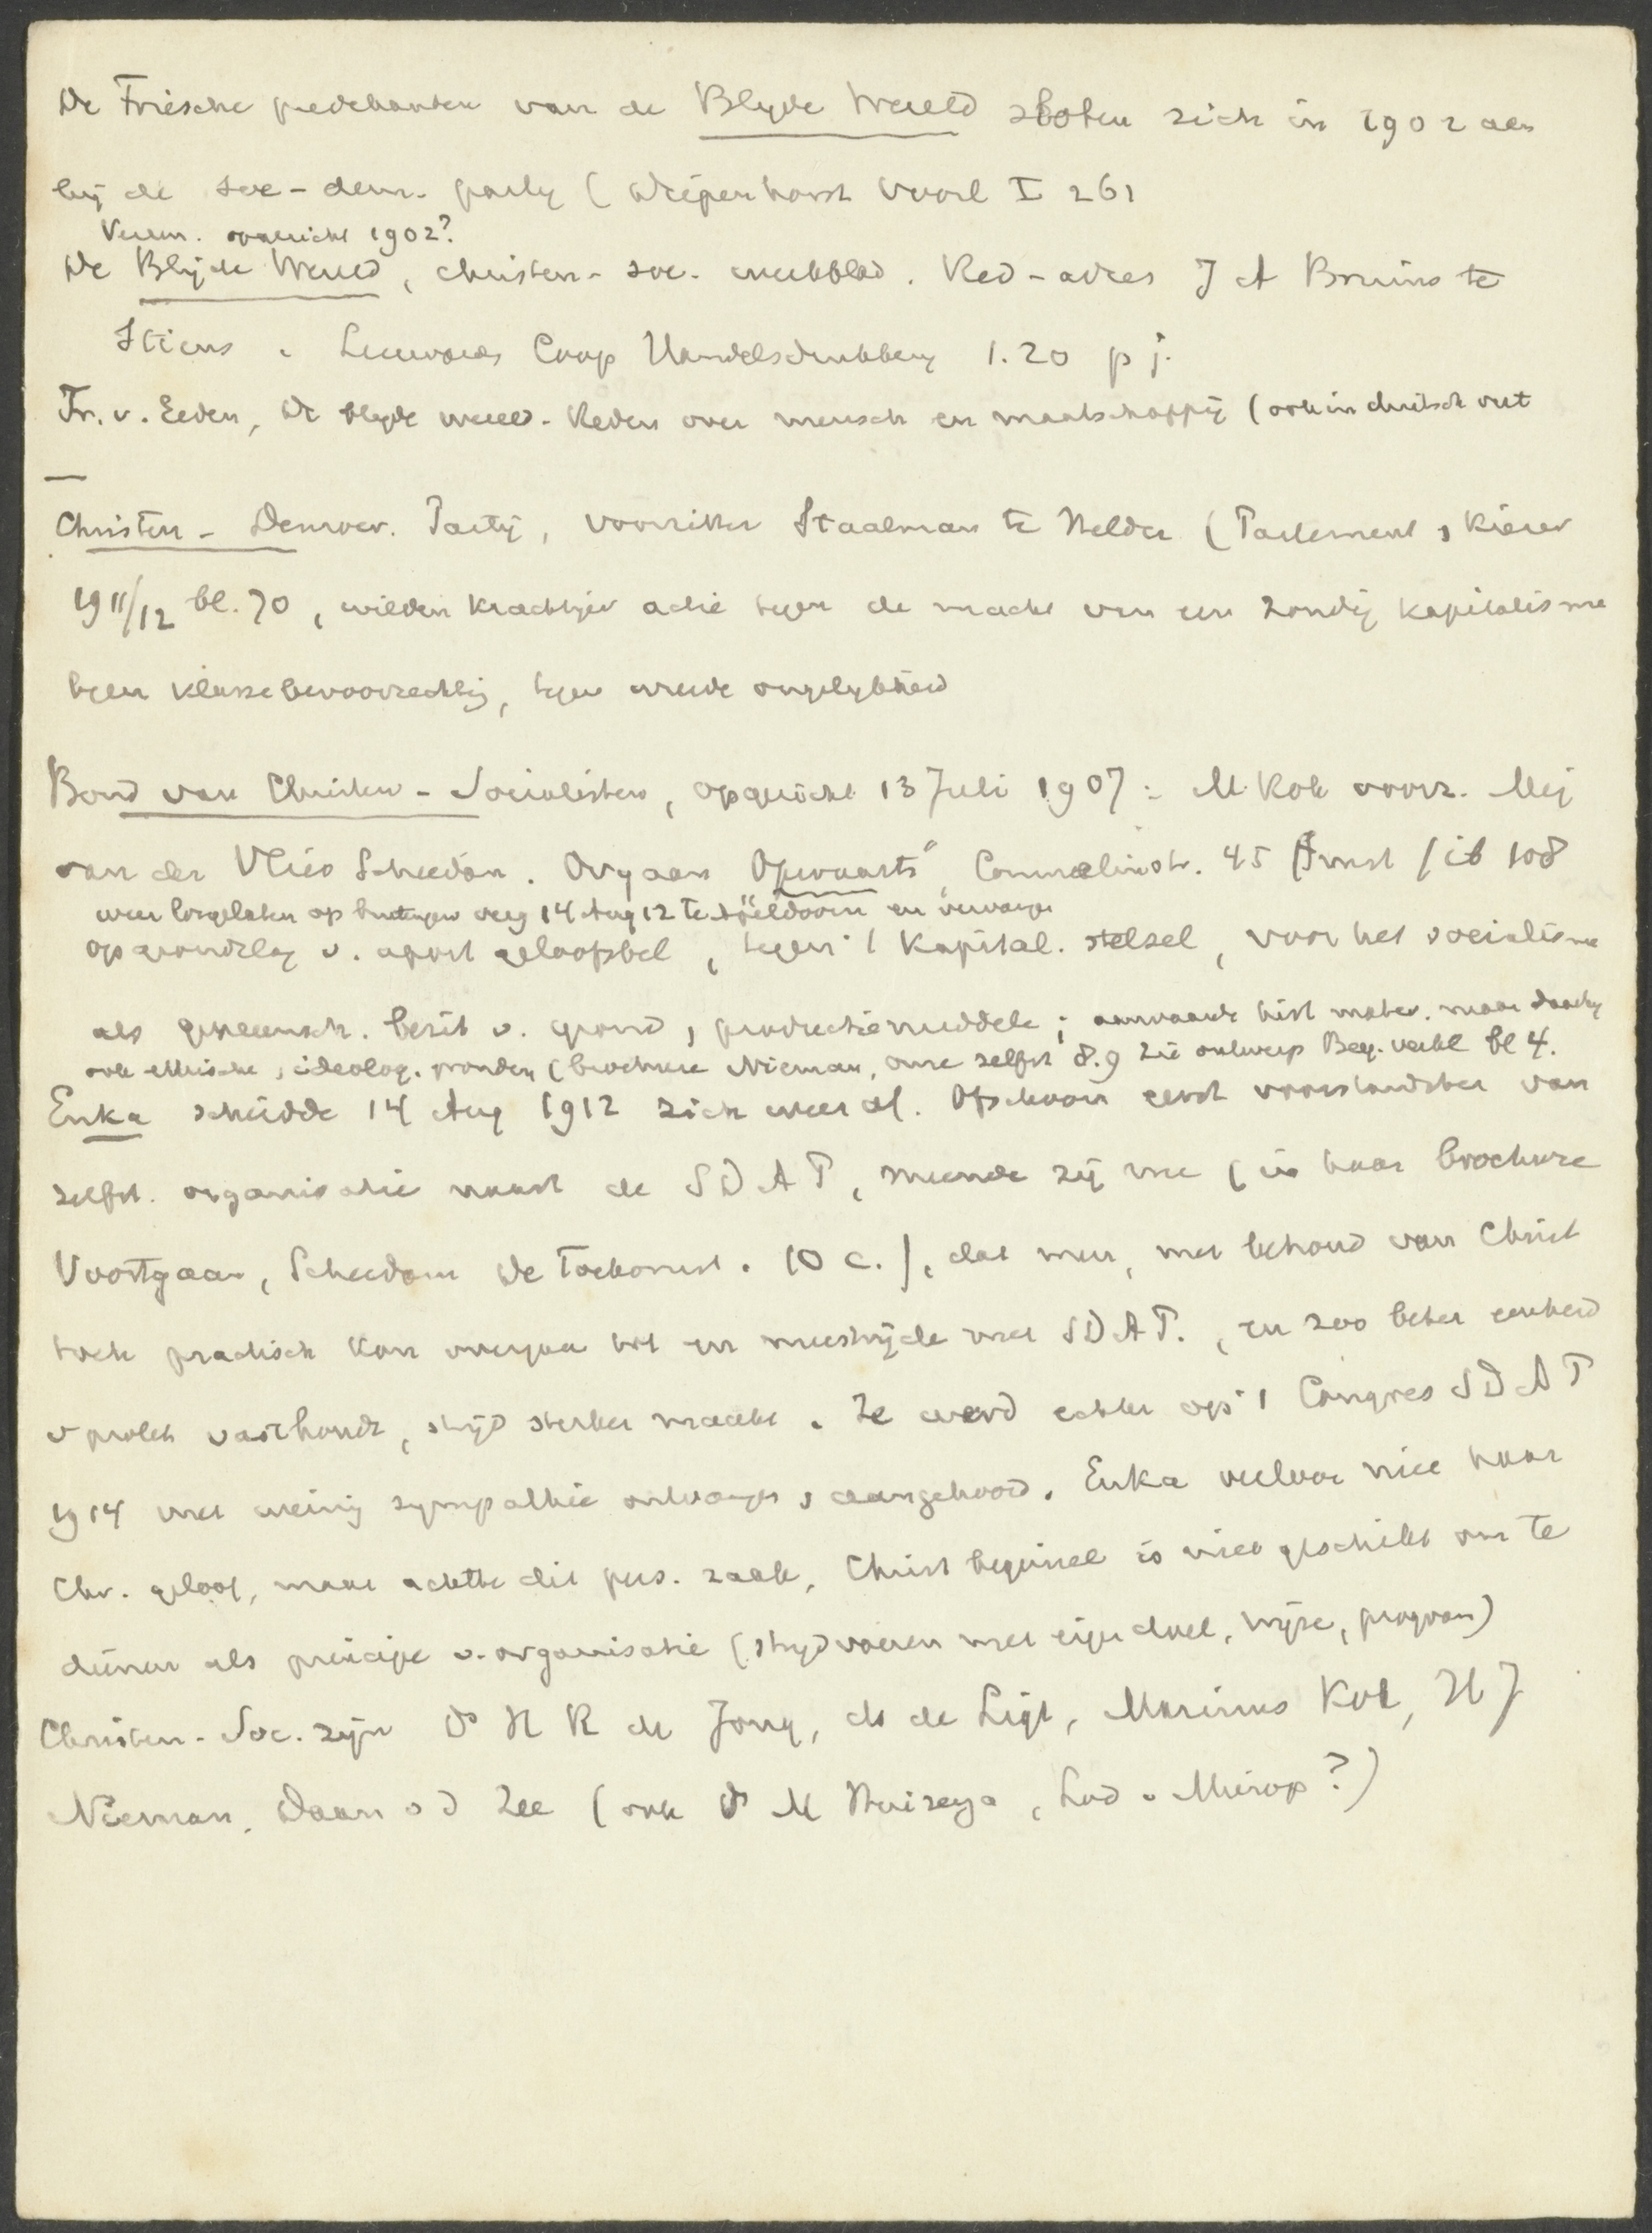 De Friesche predekanten van de Blyde Wereld sloten zich in 1902 aan
bij de soc-dem. party (Diepenhorst Voorl I 261
Verm. opgericht 1902?
De Blijde Wereld, christen-soc. weekblad. Red-adres J A Bruins te
Stiens. Leeuward Coop Handelsdrukkery 1.20 p j.
Fr. v. Eeden, De blyde wereld. Reden over mensch en maatschappij (ook in duitsch vert
—
Christen-Democr. Partij, voorzitter Staalman te Helder (Parlement & Kiezer
1911/12 bl. 70, wilden krachtiger actie tegen de macht van een zondig kapitalisme
tegen klassebevoorrechting, tegen wreede ongelykheid
Bond van Christen-Socialisten, opgericht 13 Juli 1907: M. Kok voorz. Mej
van der Vlies Schiedam. Orgaan "Opwaarts", Commelinstr. 45 Amst / ib 108
weer losgelaten op buitengew verg 14 Aug 12 te Apeldoorn en vervangen
op grondslag v. apost geloofsbel, tegen 't kapital. stelsel, voor het socialisme
als gemeensch. bezit v. grond & productiemiddele; aanvaarde hist mater. maar daarby
ook ethische & ideolog. gronden (brochure Nieman, onze zelfst 8.9 Zie ontwerp Beg. verkl bl 4.
Enka scheidde 14 Aug 1912 zich weer af. Ofschoon eerst voorstandster van
zelfst. organisatie naast de SDAP, meende zij nu (in haar brochure
Voortgaan, Schiedam De Toekomst. 10 c.), dat men, met behoud van Christ
toch practisch kon overgaan tot en meestrijde met SDAP., en zoo beter eenheid
v prolet vasthoudt, strijd sterker maakt. Ze werd echter op 't Congres SDAP
1914 met weinig sympathie ontvangen & aangehoord. Enka verloor niet haar
Chr. geloof, maar achtte dit pers. zaak, Christ beginsel is niet geschikt om te
dienen als principe v. organisatie (strijd voeren met eigen doel, wijze, program)
Christen-Soc. zijn Ds N R de Jong, ds de Ligt, Marinus Kok, H J
Nieman, Daan v d Zee (ook Ds M Huizenga, Lod v Mierop?)